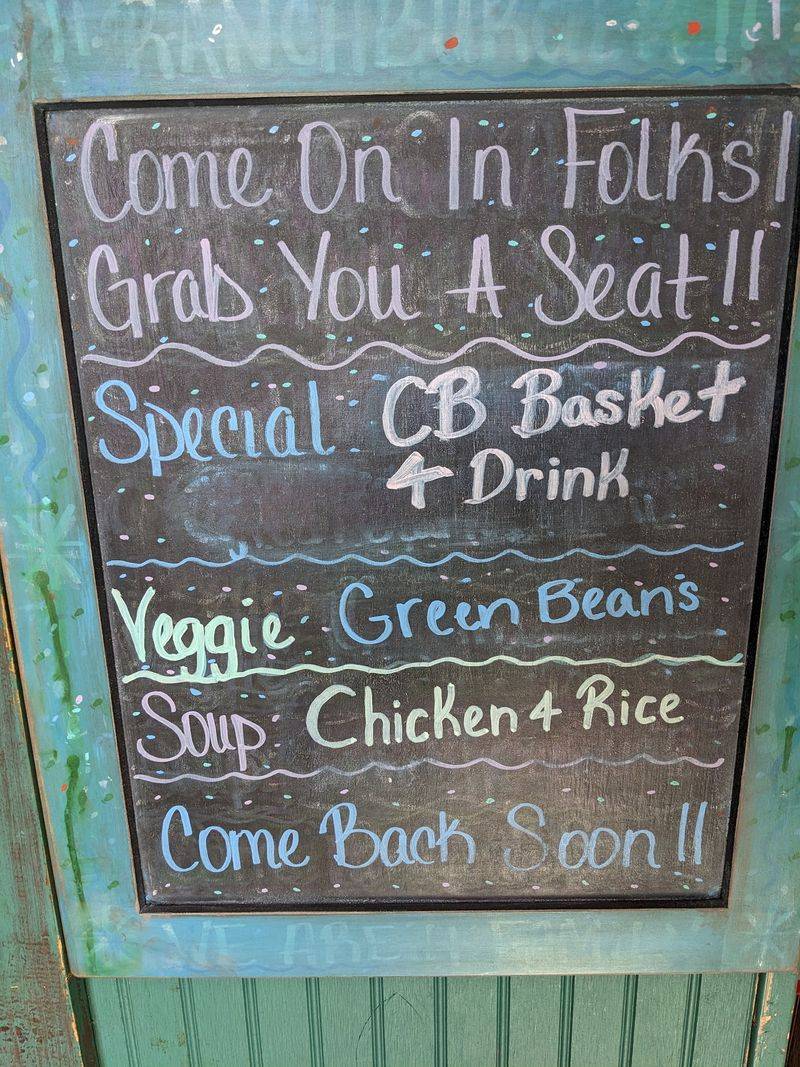 Come On In Folks!
Grab You A Seat!!
Special CB Basket
& Drink
Veggie Green Beans
Soup: Chicken & Rice
Come Back Soon!!
WE ARE